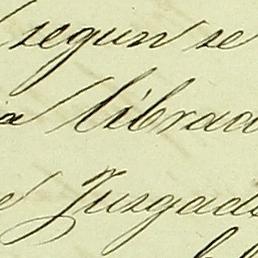 segun se
a librad
e Juzgado